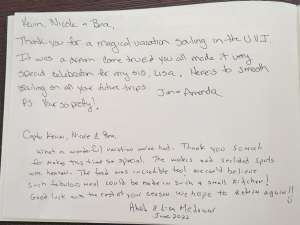 Kevin, Nicole & Bra,
Thank you for a magical vacation sailing in the U.V.I.
It was a dream come true & you all made it very
special celebration for my sis, Lisa. Here's to smooth
sailing on all your future trips
PS. You're so pretty! Amanda
Capt Kevin, Nicole & Bra,
What a wonderful vacation we've had. Thank you so much
for making this trip so special. The waters and secluded spots
were heaven. The food was incredible too! We could believe
such fabulous meal could be made in such a small kitchen!
Good luck with the rest of your season. We hope to return again!!
& Lisa
June 2022